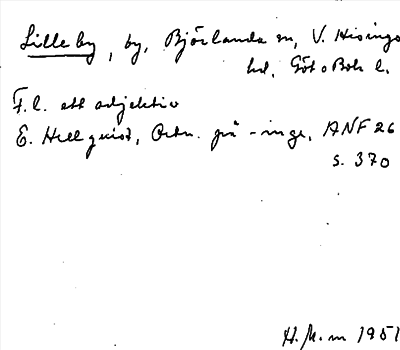 Lilleby, by, Björlanda sn, V. Hisings
hd, Göt o Boh l.
F.l. ett adjektiv
E. Hellquist, Ortn. på -inge, ANF 26
s. 370
H.M.m 1951